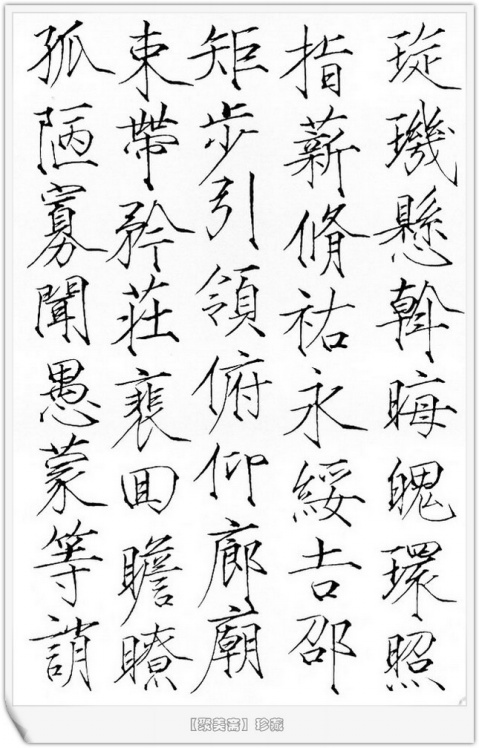 琁璣懸斡晦魄環照
指薪脩祜永綏吉邵
矩步引領俯仰廊廟
束帶矜莊裴回瞻瞭
孤陋寡聞愚蒙等誚
【聚美斋】珍藏